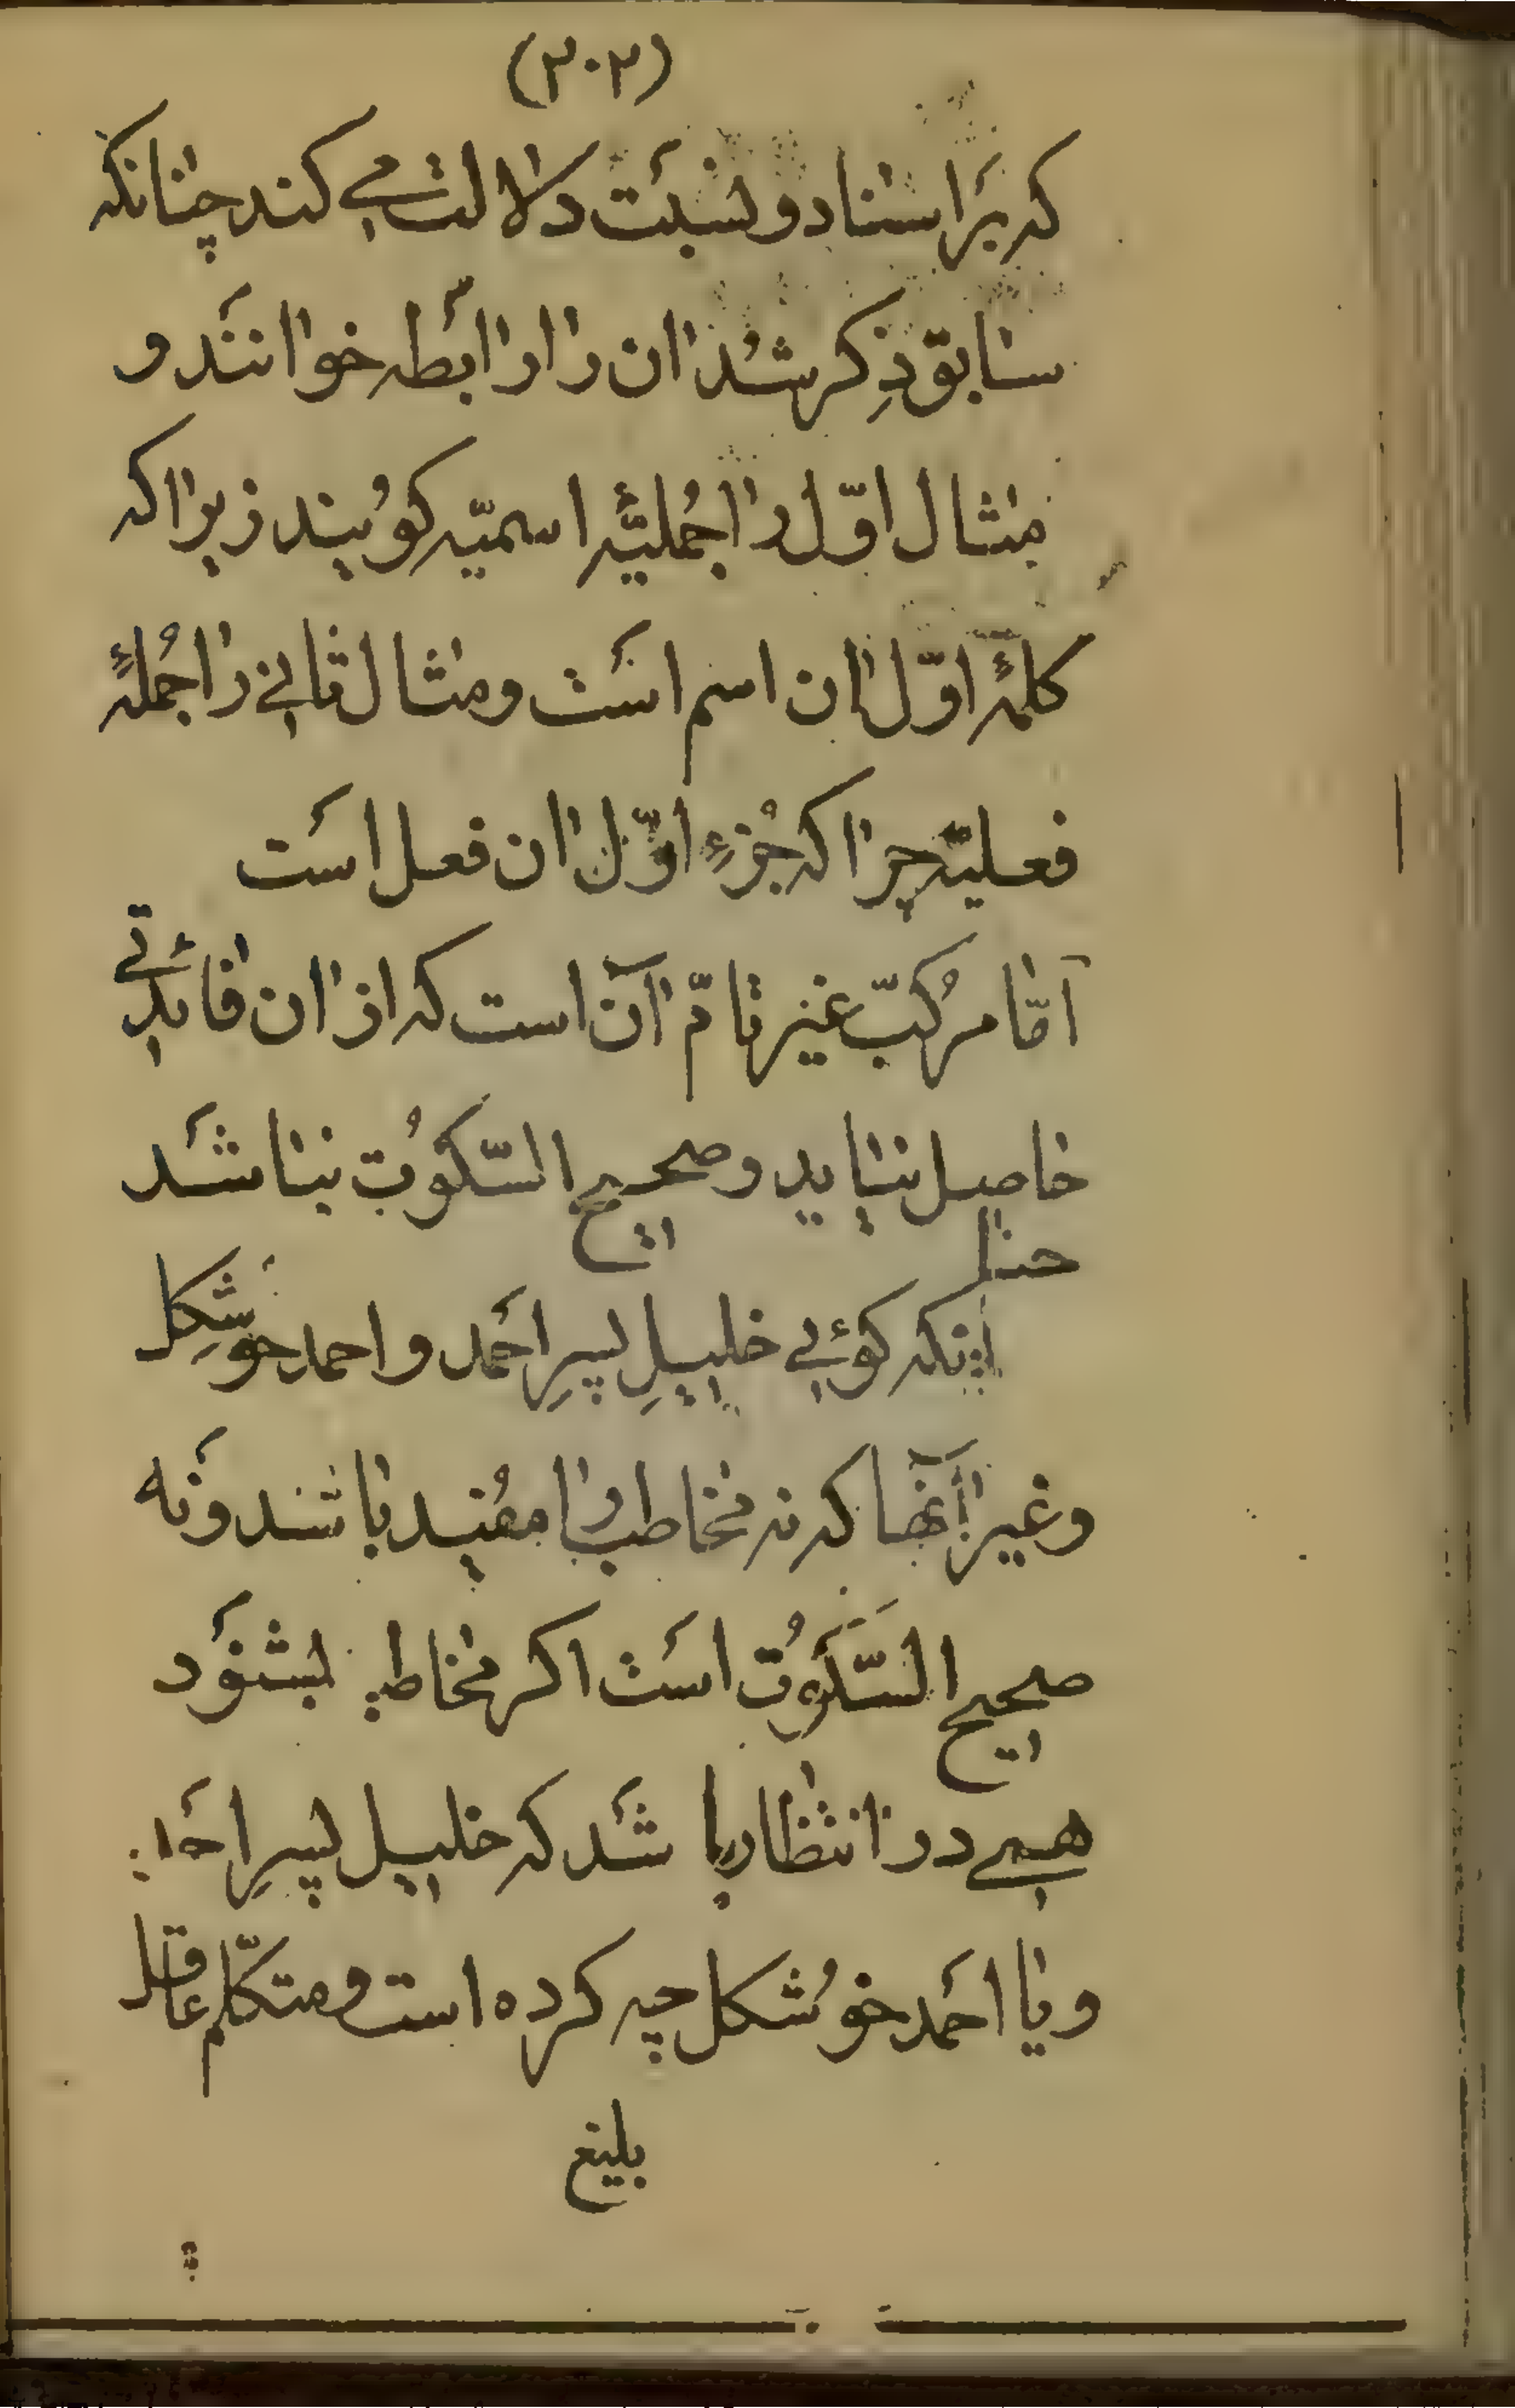 (٢٠٢)
که بَر اسناد و نسبَت دلالت می کند چنانکه
سابق ذِکر شُد ان را رابَطه خوانَنَد و
مثال اوّل را جُمليّهٔ اسميّه کوُيند زيرا که
کلمهٔ اوّل ان اسم اسَت و مثال ثانی را جُملهٔ
فعليّه چرا که جُزءِ اوّل ان فعل اسَت
اَمّا مرُکبّ غير تامّ آن است که از ان فائدتی
حاصِل نيايد و صحيح السّکوُت نباشَد
چنا
انکه کوئی خليلِ پسرِ احَمد و احمد خوشکِل
و غير آنها که نه مخاطب را مفُيد باشد و نَه
صحيح السَّکوُت اسَت اکر مخاطب بشنوَد
همی در انتظار باشَد که خليل پسرِ احَمد
و يا احَمد خوُشکل چه کرده است و متکلّم عاقل
بليغ